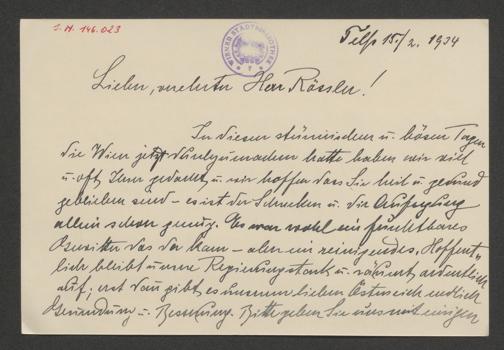 J.N. 146.023
WIENER STADTBIBLIOTHEK
Telfs 15./2. 1934
Lieber, verehrter Herr Rössler!
In diesen stürmischen u. bösen Tagen
die Wien jetzt durchzumachen hatte haben wir viel
u. oft Ihrer gedacht u. wir hoffen dass Sie heil u. gesund
geblieben sind – es ist der Schrecken u. die Aufregung
allein schon genug. Es war wohl ein furchtbares
Gewitter das da kam – aber ein reinigendes. „Hoffent"
lich bleibt unsere Regierung stark u. räumt ordentlich
auf; erst dann gibt es unserem lieben Österreich endlich
Gesundung u. Besserung. Bitte geben Sie uns mit einigen